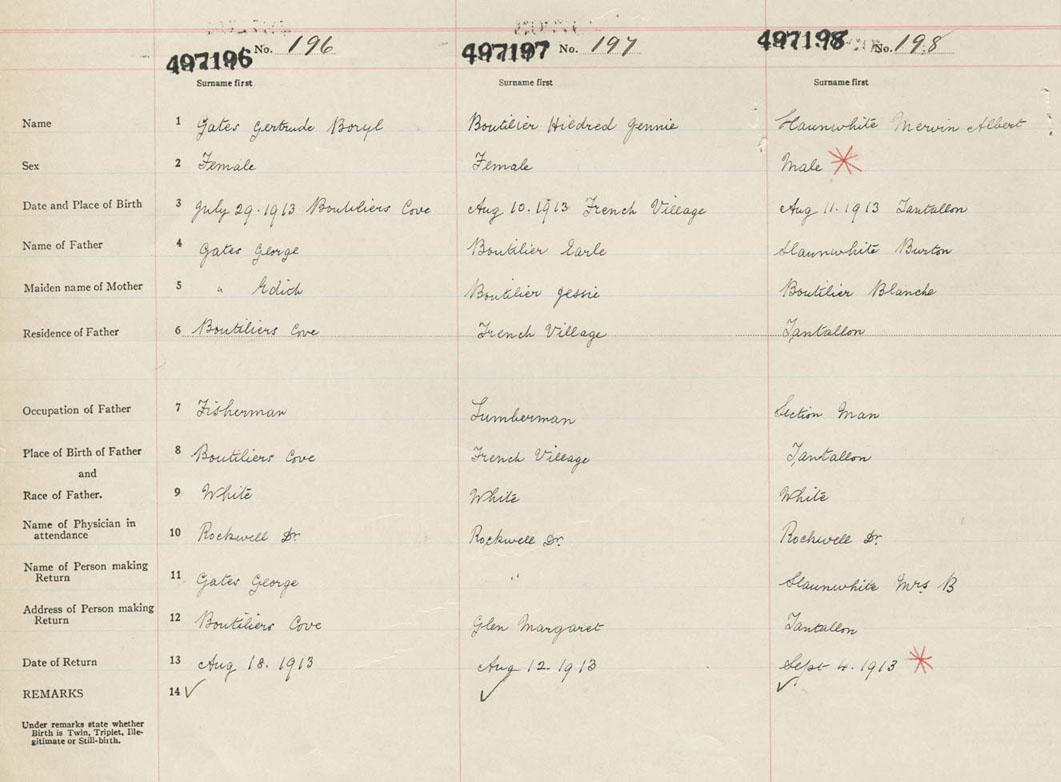 497196 No. 196 497197 No. 197 497198 No. 198
Surname first Surname first Surname first
Name 1 Gates Gertrude Beryl Boutilier Hildred Jennie Slaunwhite Mervin Albert
Sex 2 Female Female Male *
Date and Place of Birth 3 July 29. 1913 Boutiliers Cove Aug 10. 1913 French Village Aug 11. 1913 Tantallon
Name of Father 4 Gates George Boutilier Earle Slaunwhite Burton
Maiden name of Mother 5 " Edith Boutilier Jessie Boutilier Blanche
Residence of Father 6 Boutiliers Cove French Village Tantallon
Occupation of Father 7 Fisherman Lumberman Section Man
Place of Birth of Father 8 Boutiliers Cove French Village Tantallon
and
Race of Father. 9 White White White
Name of Physician in
attendance 10 Rockwell Dr. Rockwell Dr. Rockwell Dr.
Name of Person making
Return 11 Gates George " Slaunwhite Mrs B
Address of Person making
Return 12 Boutiliers Cove Glen Margaret Tantallon
Date of Return 13 Aug 18. 1913 Aug 12. 1913 Sept 4. 1913 *
REMARKS 14 ✓ ✓ ✓
Under remarks state whether
Birth is Twin, Triplet, Ille-
gitimate or Still-birth.